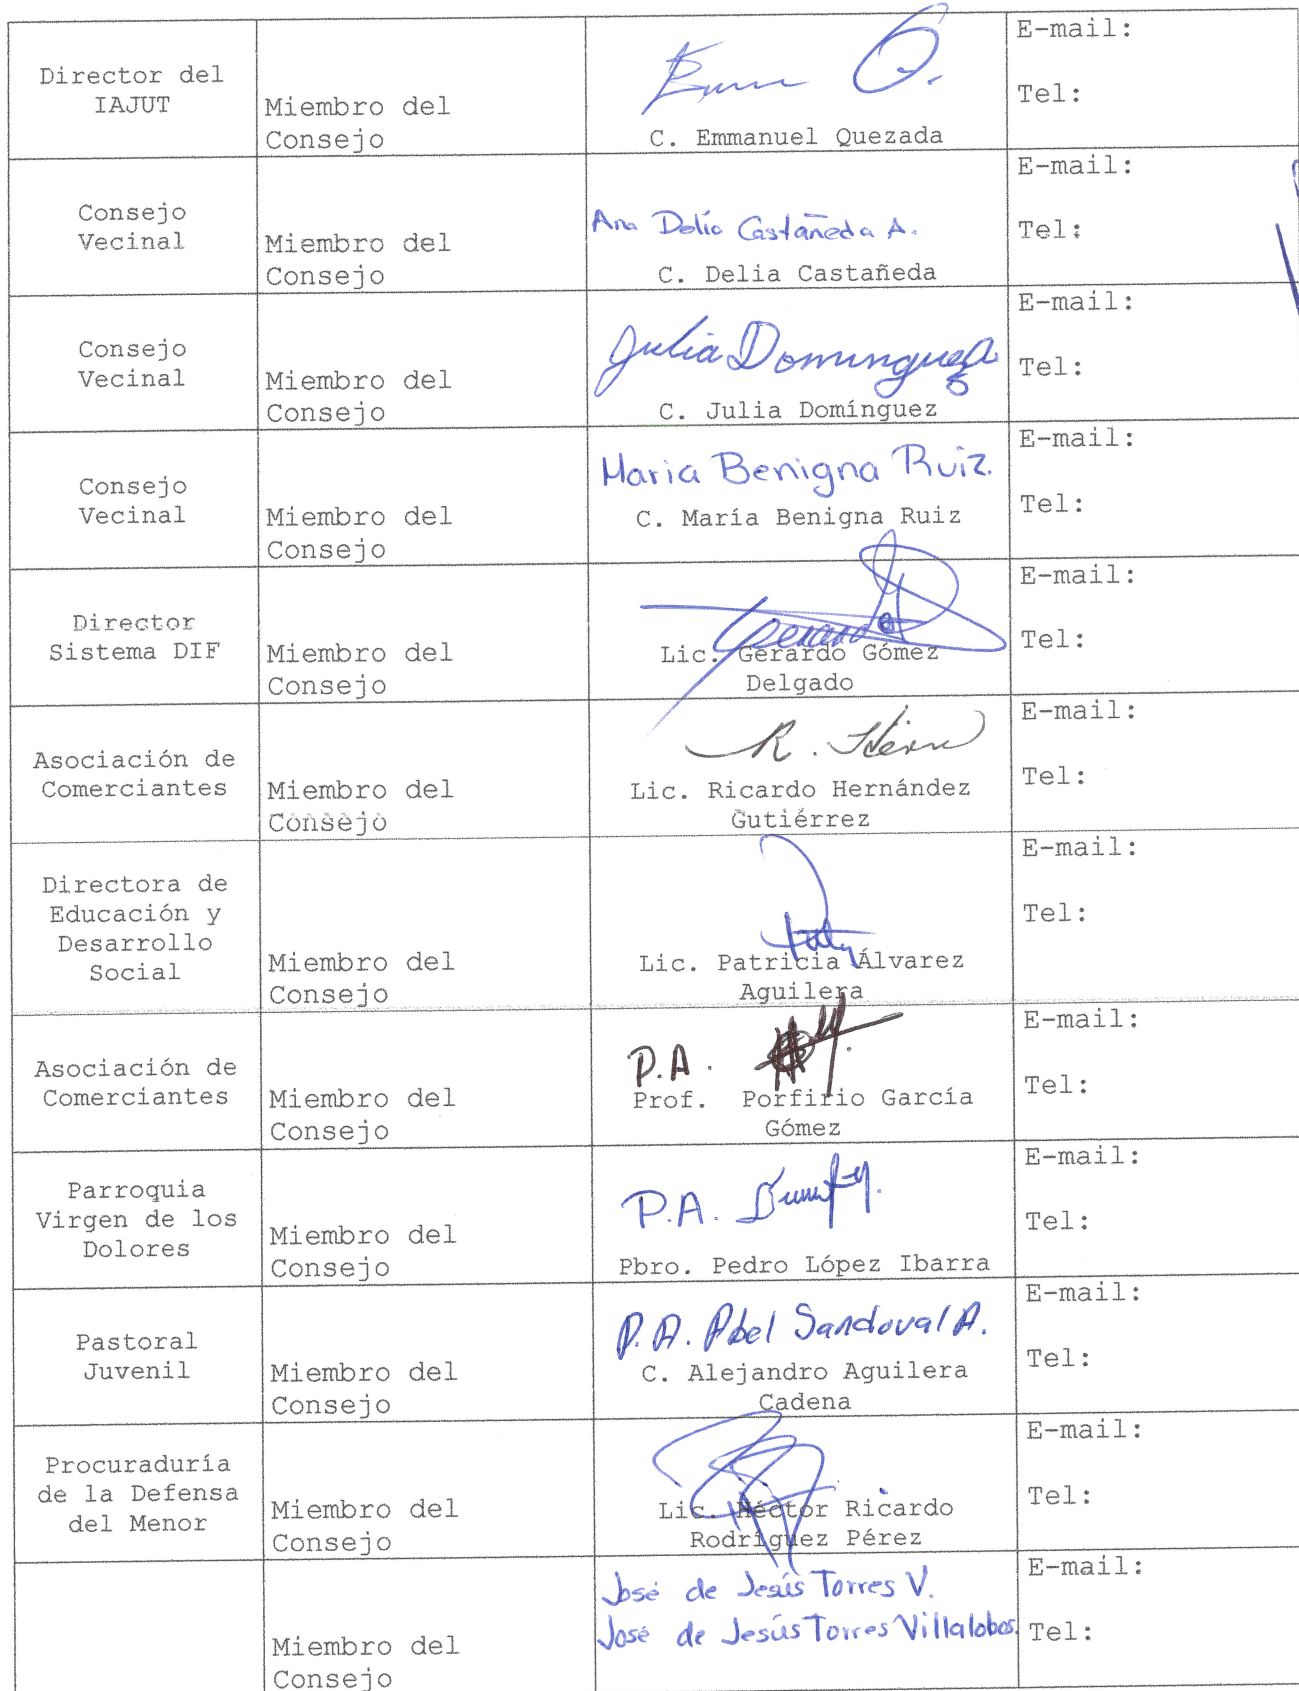 Director del
IAJUT
Miembro del
Consejo
C. Emmanuel Quezada
E-mail:
Tel:
Consejo
Vecinal
Miembro del
Consejo
Ana Delia Castañeda A.
C. Delia Castañeda
E-mail:
Tel:
Consejo
Vecinal
Miembro del
Consejo
Julia Dominguez A
C. Julia Domínguez
E-mail:
Tel:
Consejo
Vecinal
Miembro del
Consejo
Maria Benigna Ruiz.
C. María Benigna Ruiz
E-mail:
Tel:
Director
Sistema DIF
Miembro del
Consejo
Gerardo
Lic. Gerardo Gómez
Delgado
E-mail:
Tel:
Asociación de
Comerciantes
Miembro del
Consejo
R.
Lic. Ricardo Hernández
Gutiérrez
E-mail:
Tel:
Directora de
Educación y
Desarrollo
Social
Miembro del
Consejo
Lic. Patricia Álvarez
Aguilera
E-mail:
Tel:
Asociación de
Comerciantes
Miembro del
Consejo
P.A.
Prof. Porfirio García
Gómez
E-mail:
Tel:
Parroquia
Virgen de los
Dolores
Miembro del
Consejo
P.A.
Pbro. Pedro López Ibarra
E-mail:
Tel:
Pastoral
Juvenil
Miembro del
Consejo
P.A. Abel Sandoval A.
C. Alejandro Aguilera
Cadena
E-mail:
Tel:
Procuraduría
de la Defensa
del Menor
Miembro del
Consejo
Lic. Héctor Ricardo
Rodríguez Pérez
E-mail:
Tel:
Miembro del
Consejo
José de Jesús Torres V.
José de Jesús Torres Villalobos.
E-mail:
Tel: